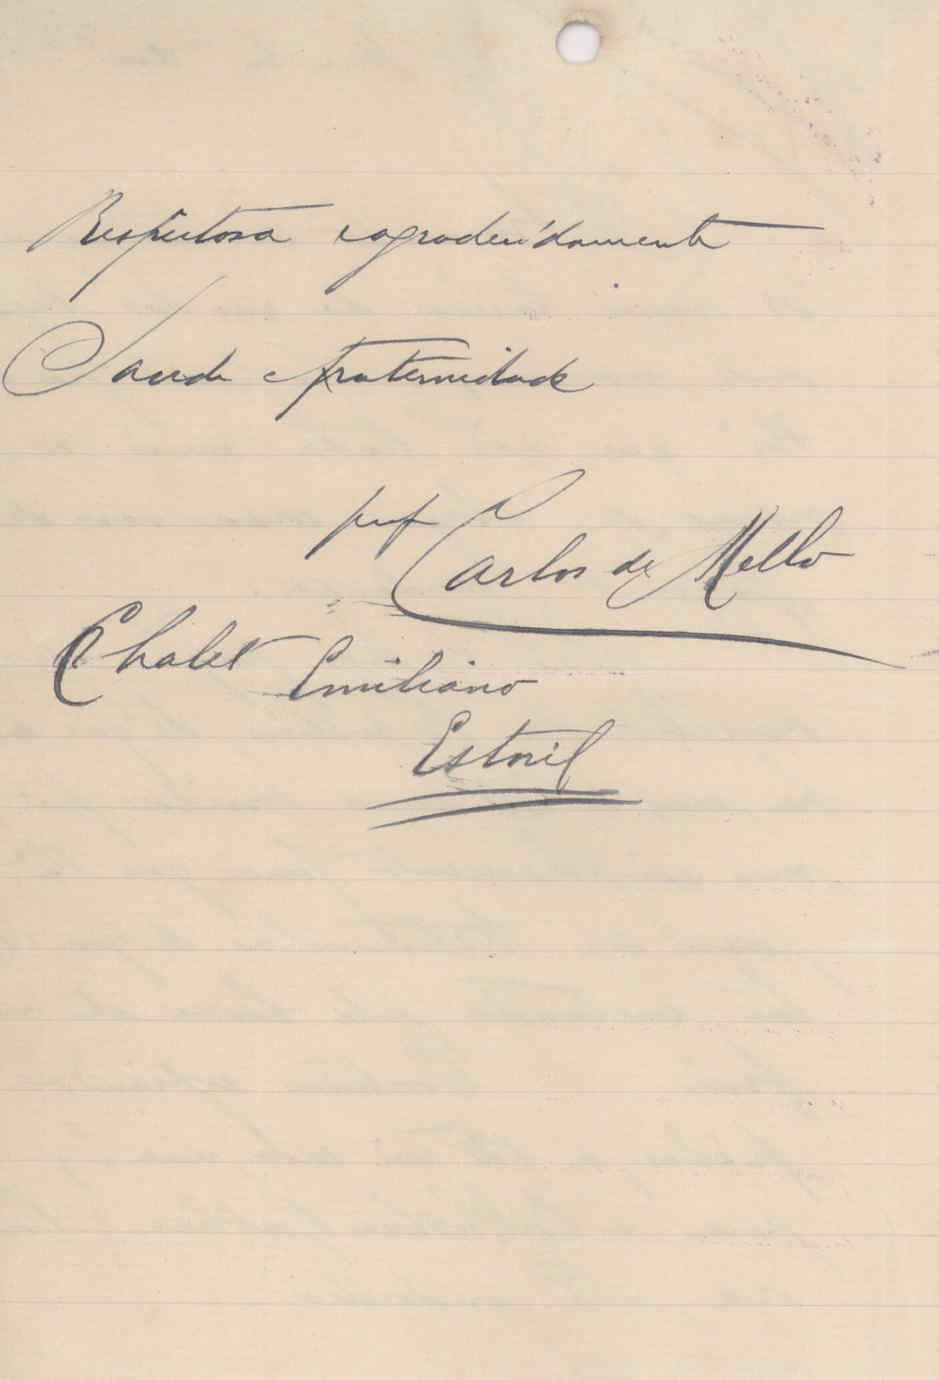 Respeitosa e agradecidamente
Saude e fraternidade
prof Carlos de Mello
Chalet Emiliano
Estoril